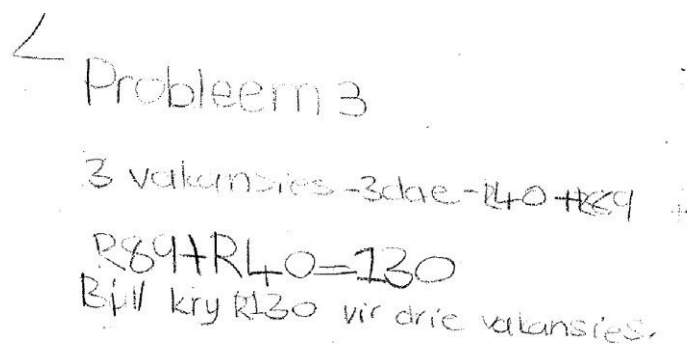 Probleem 3
3 vakansies-3dae-R40+R89
R89+R40=130
Bill kry R130 vir drie vakansies.